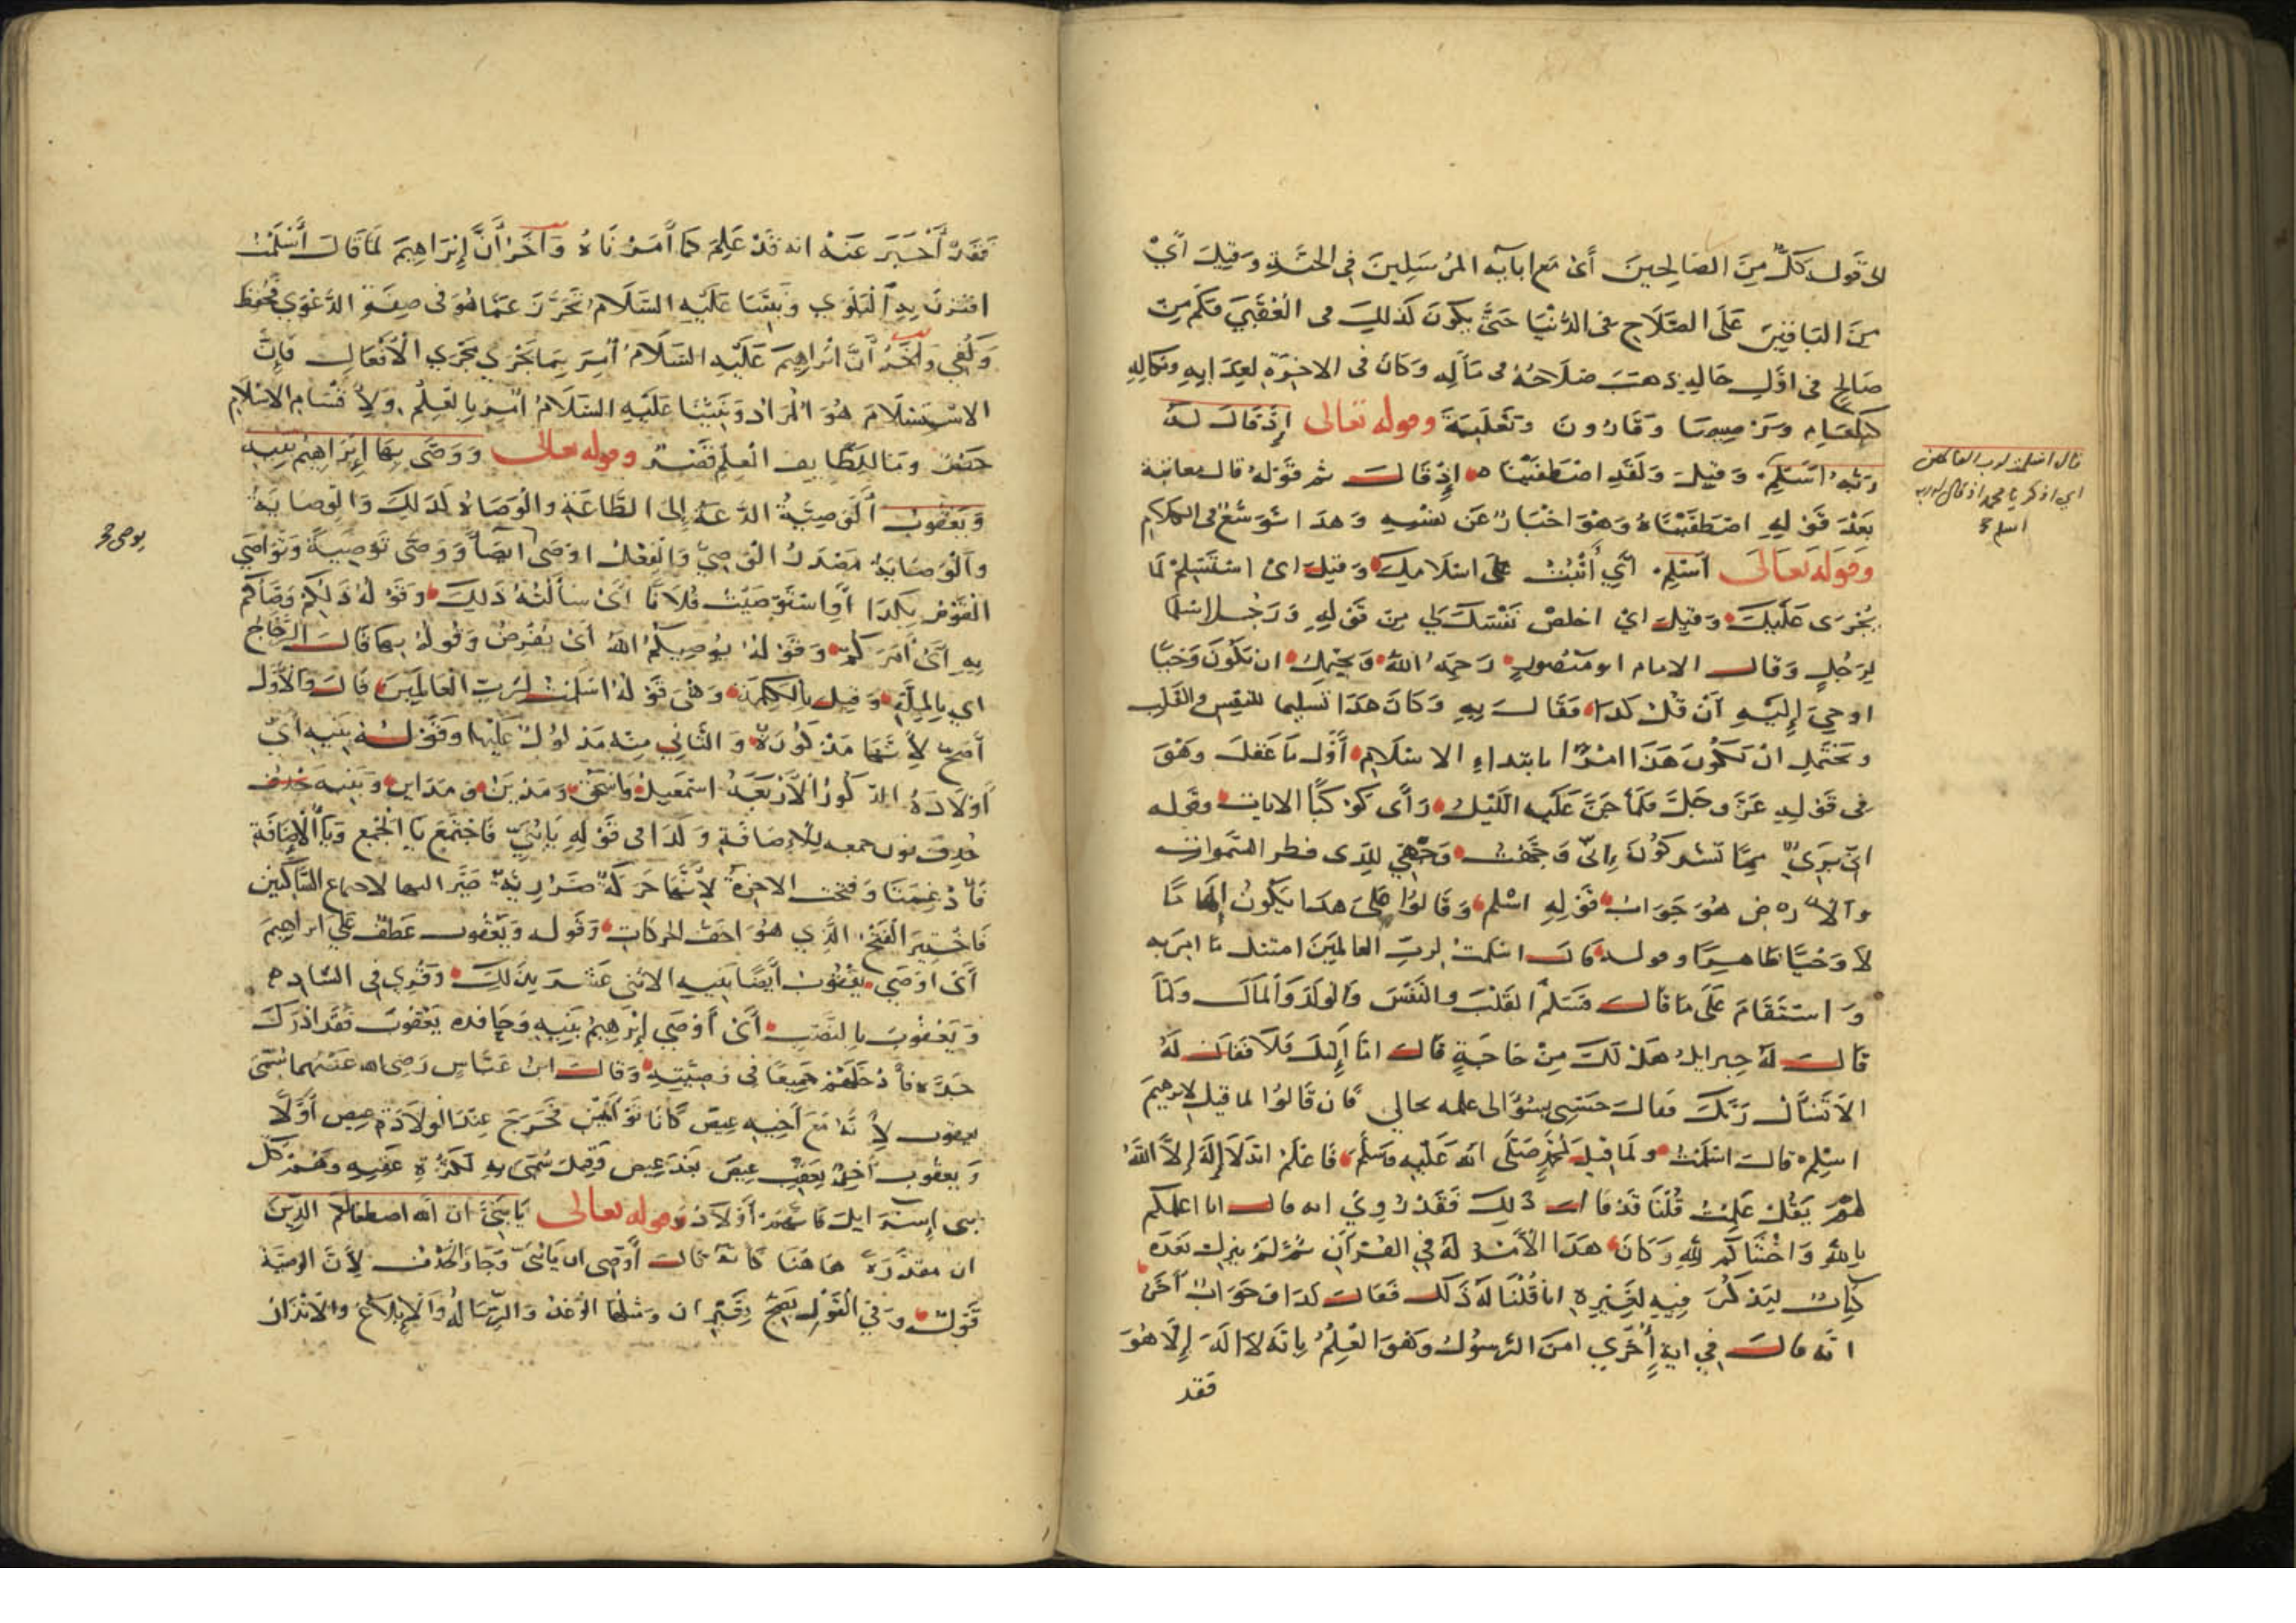 الى قوله كل من الصالحين أي مع آبايه المرسلين في الجنة وقيل أي
من الباقين على الصلاح في الدنيا حتى يكون كذلك في العقبى فكم من
صالح في اول حاله ذهب صلاحه في مآله وكان في الاخرة لعذابه ونكاله
كبلعام وبرصيصا وقارون وثعلبة وقوله تعالى إذ قال له
ربه اسلم وقيل ولقد اصطفيناه إذ قال ثم قوله قال معاينة
بعد قوله اصطفيناه وهو اخبار عن نفسه وهذا توسع في الكلام
وقوله تعالى أسلم أي أثبت على اسلامك وقيل اي استسلم لما
يجرى عليك وقيل اي اخلص نفسك لي من قوله ورجلا سلما
لرجل وقال الامام ابو منصور رحمه الله ويحتمل ان يكون وحيا
اوحي إليه أن قل كذا فقال به وكان هذا تسليما للنفس والقلب
ويحتمل ان يكون هذا امرا بابتداء الاسلام أول ما عقل وهو
في قوله عز وجل فلما جن عليه الليل رأى كوكبا الايات وقوله
اني بريء مما تشركون إني وجهت وجهي للذى فطر السموات
والارض هو جواب قوله اسلم وقالوا على هذا يكون إلهاما
لا وحيا ظاهرا وقوله قال اسلمت لرب العالمين امتثل ما امر به
واستقام على ما قال فسلم القلب والنفس والولد والمال ولما
قال له جبرايل هل لك من حاجة قال اما إليك فلا فقال له
الا تسأل ربك فقال حسبي سؤالى علمه بحالي فان قالوا لما قيل لابرهيم
اسلم قال اسلمت ولما قيل لمحمد صلى الله عليه وسلم فاعلم انه لا إله إلا الله
لم يقل علمت قلنا قد قال ذلك فقد روي انه قال انا اعلمكم
بالله واخشاكم لله وكان هذا الأمر له في القرآن ثم لم ينزل بعده
كتاب ليذكر فيه لغيره انا قلنا له ذلك فقال كذا وجواب آخر
انه قال في اية أخرى امن الرسول وهو العلم بانه لا اله إلا هو
فقد
قال اسلمت لرب العالمين
اي اذكر يا محمد اذ قال له ربه
اسلم
فقد أخبر عنه انه قد علم كما أمرناه وآخر أن إبراهيم لما قال أسلمت
اقترن به البلوى ونبينا عليه السلام تحرز عما هو في صفة الدعوى فحفظ
وكفي وآخر أن ابراهيم عليه السلام أمر بما يجري مجرى الأفعال فإن
الاستسلام هو المراد ونبينا عليه السلام أمر بالعلم ولاقسام الاسلام
حد وما للطايف العلم وقوله تعالى ووصى بها إبراهيم بنيه
ويعقوب الوصية الدعة إلى الطاعة والوصاة كذلك والوصاية
والوصاية مصدر الوصي والفعل اوصى ايضا ووصى توصية وتواصى
القوم بكذا واستوصيت فلانا أي سألته ذلك وقوله ذلكم وصاكم
به أي أمركم وقوله يوصيكم الله أي يفرض وقوله بها قال الزجاج
اي بالملة وقيل بالكلمة وهي قوله اسلمت لرب العالمين قال والأول
أصح لأنها مذكورة والثاني منه مدلول عليها وقوله بنيه أي
أولاده الذكور الأربعة اسمعيل واسحق ومدين ومداين وبنيه
حذف نون جمعه للاضافة وكذا في قوله يا بني فاجتمع يا الجمع ويا الإضافة
فأدغمتا وفتحت الاخرة لأنها حركة ضرورية صير اليها لاجتماع الساكنين
فاختير الفتح الذي هو اخف الحركات وقوله ويعقوب عطف على ابراهيم
أي اوصى يعقوب أيضا بنيه الاثني عشر بذلك وقري في الشاذ
ويعقوب بالنصب أي أوصى إبرهيم بنيه وحافده يعقوب فقد ادرك
جده فأدخلهم جميعا في وصيته وقال ابن عباس رضى الله عنهما سمى
يعقوب لأنه مع أخيه عيص كانا توأمين فخرج عند الولادة عيص أولا
ويعقوب آخذ بعقب عيص بعد عيص وقيل سمى به لكثرة عقبه وهم كل
بني إسرايل فانهم أولاده وقوله تعالى يا بني ان الله اصطفى لكم الدين
ان مقدرة هاهنا كانه قال أوصى ان يا بني وجاز الحذف لأن الوصية
قول وفي القول يصح بغير ان ومثلها الوعد والرسالة والإبلاغ والانذار
يوصى